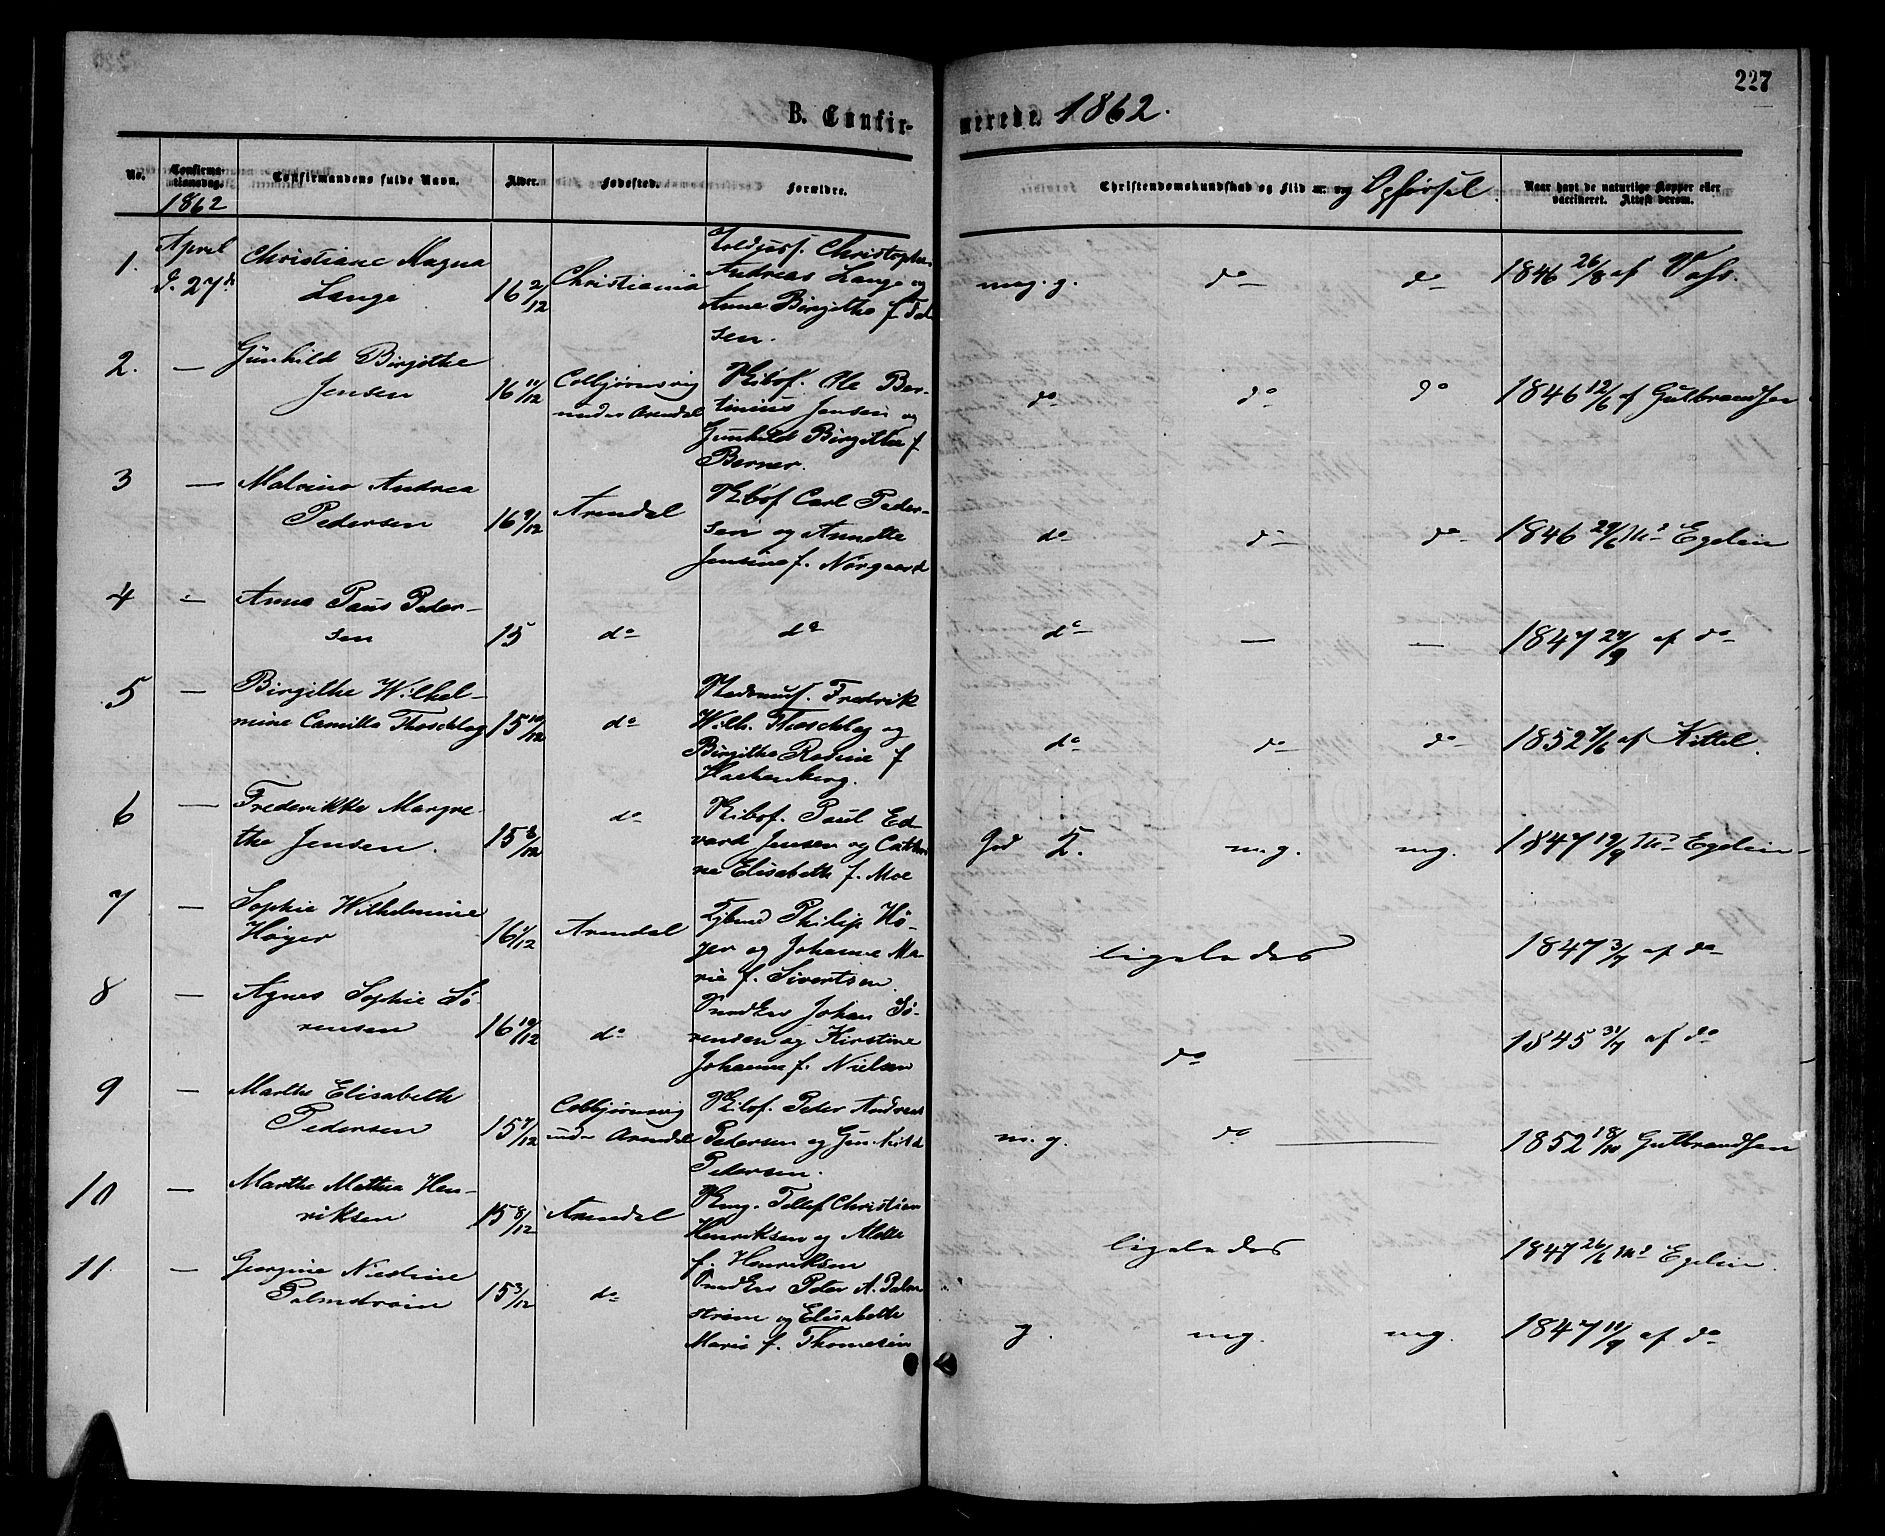 227
B. Confirmerede. 1862.
No. Confirmationsdag. Confirmandens fulde Navn. Alder. Fødested. Forældre. Christendomskundskab og Flid og Opførsel. Naar havt de naturlige Kopper eller vaccineret. Attest derom.
1862
1. April d. 27d.
Christiane Magna
Lange
16 2/12
Christiania
Christopher
Andreas Lange og
Anne Birgithe f.
sen.
mg. g. do do
1846 26/8 af
2. —
Gunhild Birgithe
Jensen
16 11/12
Colbjørnsvig
under Arendal
Skibsf. Ole Ber-
tinius Jensen og
Gunhild Birgitha f.
Berner.
do do do
1846 12/6 af Gulbrandsen
3 —
Malvina Andrea
Pedersen
16 9/12
Arendal
Skibsf. Carl Peder-
sen og Annette
Jensine f. Norgaard
do do do
1846 29/6 Egelin
4 —
Anna Paus Peder-
sen
15
do
do
do — —
1847 27/9 af do
5 —
Birgithe Wilhel-
mine Camilla Thoschlag
15 10/12
do
Fredrik
Wilh. Thoschlag og
Birgitha Rodine f.
do do do
1852 7/6 af Kittel.
6 —
Frederikke Margre-
the Jensen.
15 8/12
do
Skibsf. Paul Ed-
vard Jensen og Cathri
ne Elisabeth f. Moe
God T. m.g. mg.
1847 19/9 Egelin
7 —
Sophie Wilhelmine
Høyer
16 1/12
Arendal
Philip Hø-
yer og Johanne Ma-
rie f. Sivertsen.
ligeledes
1847 3/7 af do
8 —
Agnes Sophie Sö-
rensen
16 10/12
do
Johan Sö-
rensen og Kirstine
Johanne f. Nielsen
do ———
1845 31/7 af do
9 —
Marthe Elisabeth
Pedersen
15 7/12
Colbjørnsvig
under Arendal
Skibsf. Peder Andreas
Pedersen og Gunhild
Pedersen.
m. g. do ———
1852 18/10 Gulbrandsen
10 —
Marthe Mathea Hen-
riksen
15 8/12
Arendal
Tellef Christian
Henriksen og Alette
f. Henriksen
ligeledes
1847 26/6 Egelin.
11. —
Georgine Nicoline
Palmstrøm
15 3/12
do
Peter A. Palm
strøm og Elisabeth
Marie f. Thomesen
g. mg. mg.
1847 19/9 af do